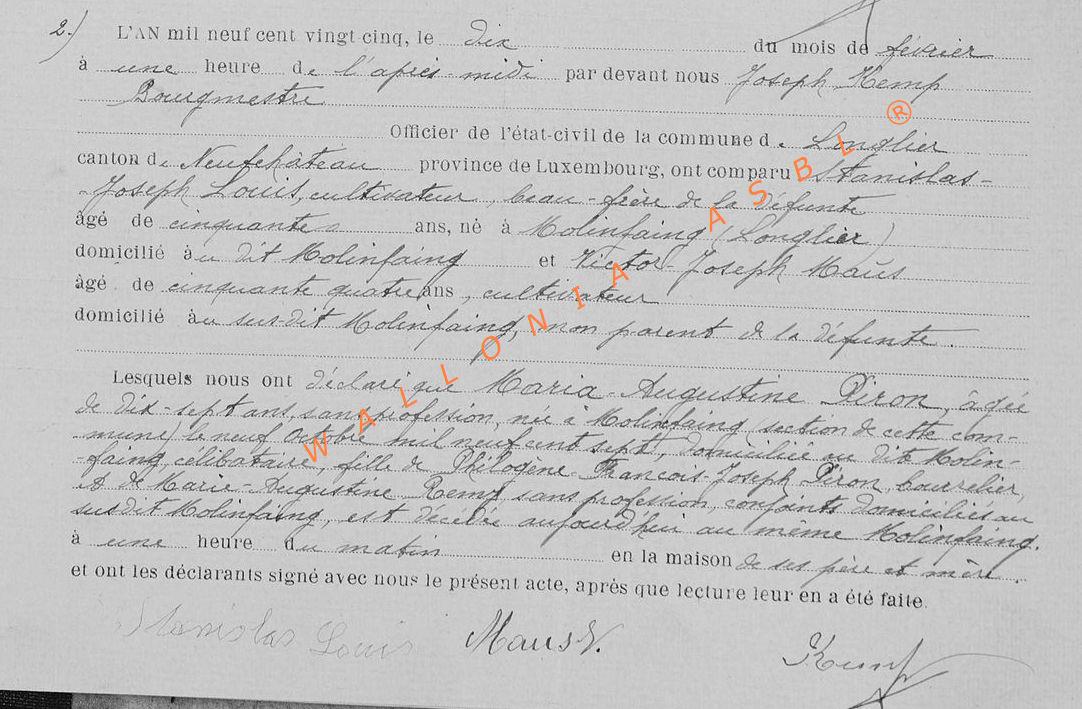 2.) L'AN mil neuf cent vingt cinq, le dix du mois de février
à une heure de l'après-midi par devant nous Joseph Kemp
Bourgmestre
Officier de l'état-civil de la commune de Longlier
canton de Neufchâteau province de Luxembourg, ont comparu Stanislas-
-Joseph Louis, cultivateur, beau-frère de la défunte
âgé de cinquante ans, né à Molinfaing (Longlier)
domicilié au dit Molinfaing et Victor-Joseph Maus
âgé de cinquante quatre ans, cultivateur
domicilié au susdit Molinfaing, non parent de la défunte.
Lesquels nous ont déclaré que Maria-Augustine Piron, âgée
de dix-sept ans, sans profession, née à Molinfaing (section de cette com-
mune) le neuf Octobre mil neuf cent sept, domiciliée au dit Molin-
-faing, célibataire, fille de Philogène-François-Joseph Piron, bourrelier,
et de Marie-Augustine, sans profession, conjoints domiciliés au
susdit Molinfaing, est décédée aujourd'hui au même Molinfaing.
à une heure du matin en la maison de ses père et mère.
et ont les déclarants signé avec nous le présent acte, après que lecture leur en a été faite.
Stanislas Louis Maus V. Kemp
WALLONIA ASBL ®